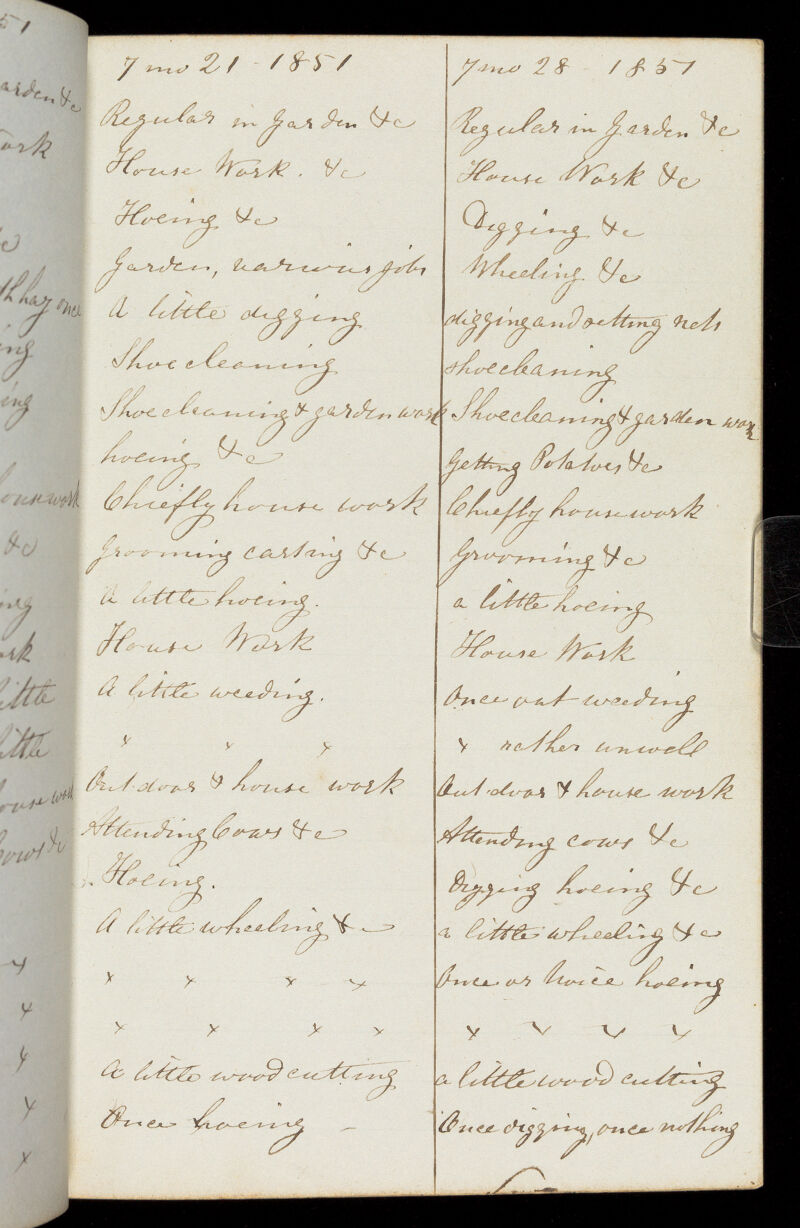 51
arden &c
ork
&c
th hay once
ing
ing
ousework
&c
ing
ork
little
little
ouse work
Cows &c
x
x
x
x
x
7 mo 21 - 1851
Regular in Garden &c
House Work. &c
Hoeing &c
Garden, various jobs
A little digging
Shoe cleaning
Shoe cleaning & garden work
hoeing &c
Chiefly house work
Grooming carting &c
A little hoeing.
House Work
A little weeding.
x x x
Out door & house work
Attending Cows &c
Hoeing.
A little wheeling &c
x x x x
x x x x
A little wood cutting
Once hoeing -
7 mo 28 - 1851
Regular in Garden &c
House Work &c
Digging &c
Wheeling &c
digging and setting nets
shoe cleaning
Shoe cleaning & garden work
Getting Potatoes &c
Chiefly house work
Grooming &c
a little hoeing
House Work
Once out weeding
x rather unwell
Out door & house work
Attending cows &c
Digging hoeing &c
a little wheeling &c
Once or twice hoeing
x x x x
a little wood cutting
Once digging, once nothing